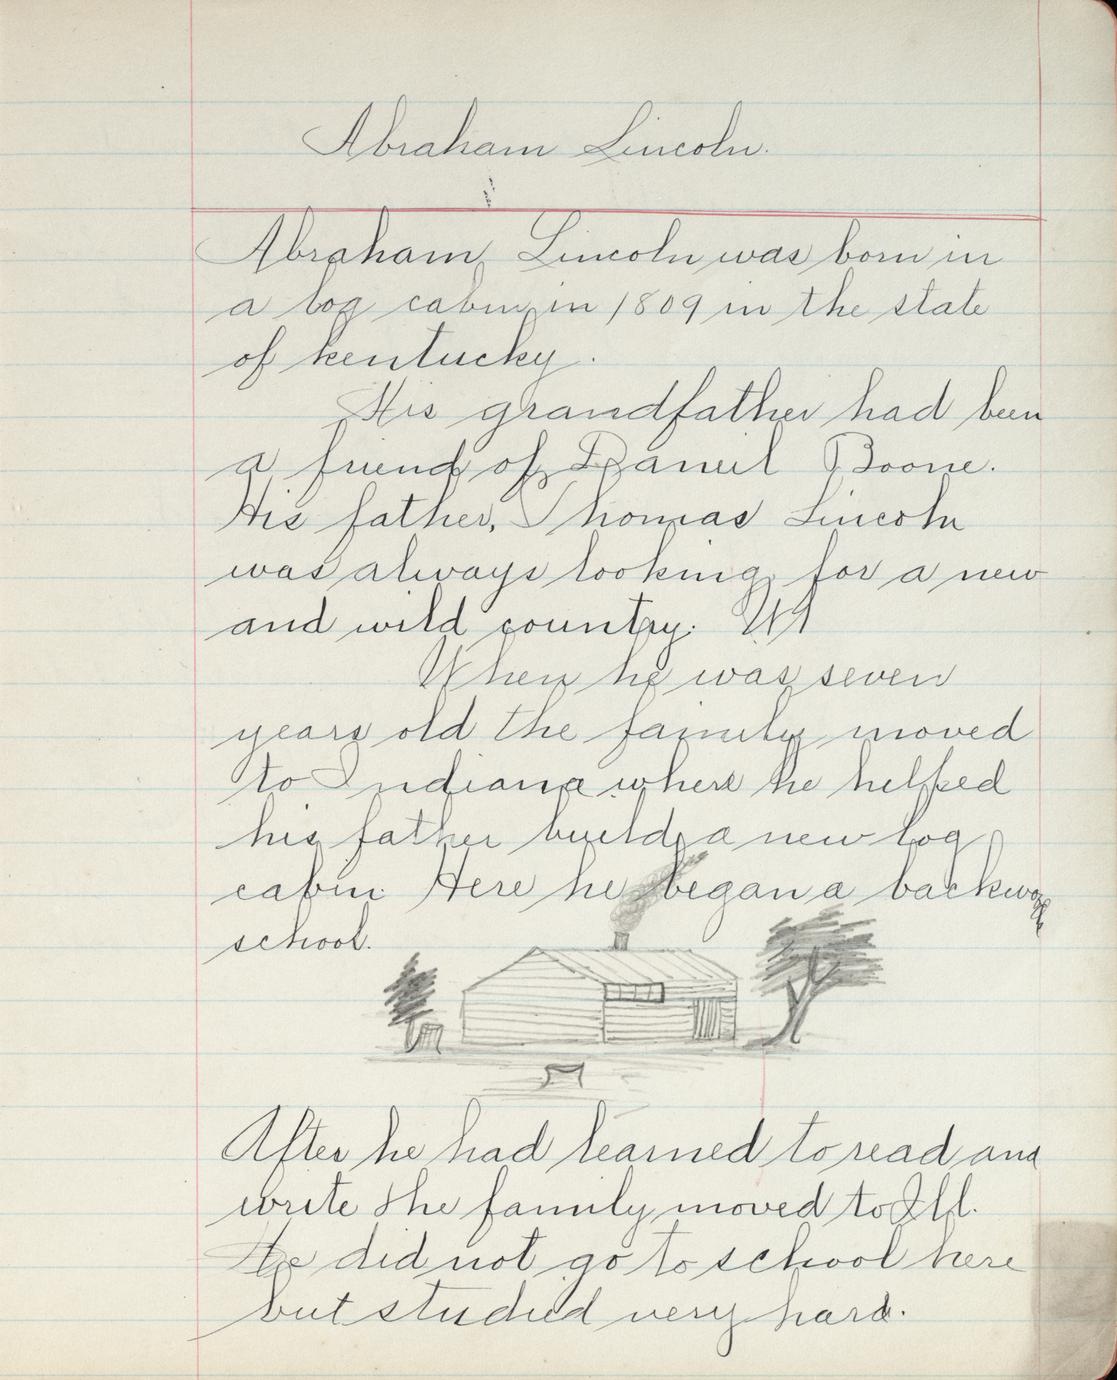 Abraham Lincoln.
Abraham Lincoln was born in
a log cabin in 1809 in the state
of kentucky.
His grandfather had been
a friend of Daniel Boone.
His father, Thomas Lincoln
was always looking for a new
and wild country.
When he was seven
years old the family moved
to Indiana where he helped
his father build a new log
cabin. Here he began a
school.
After he had learned to read and
write the family moved to Ill.
He did not go to school here
but studied very hard.